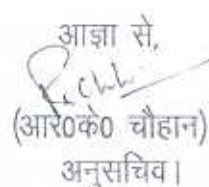 आज्ञा से,
(आर0के0 चौहान)
अनुसचिव।